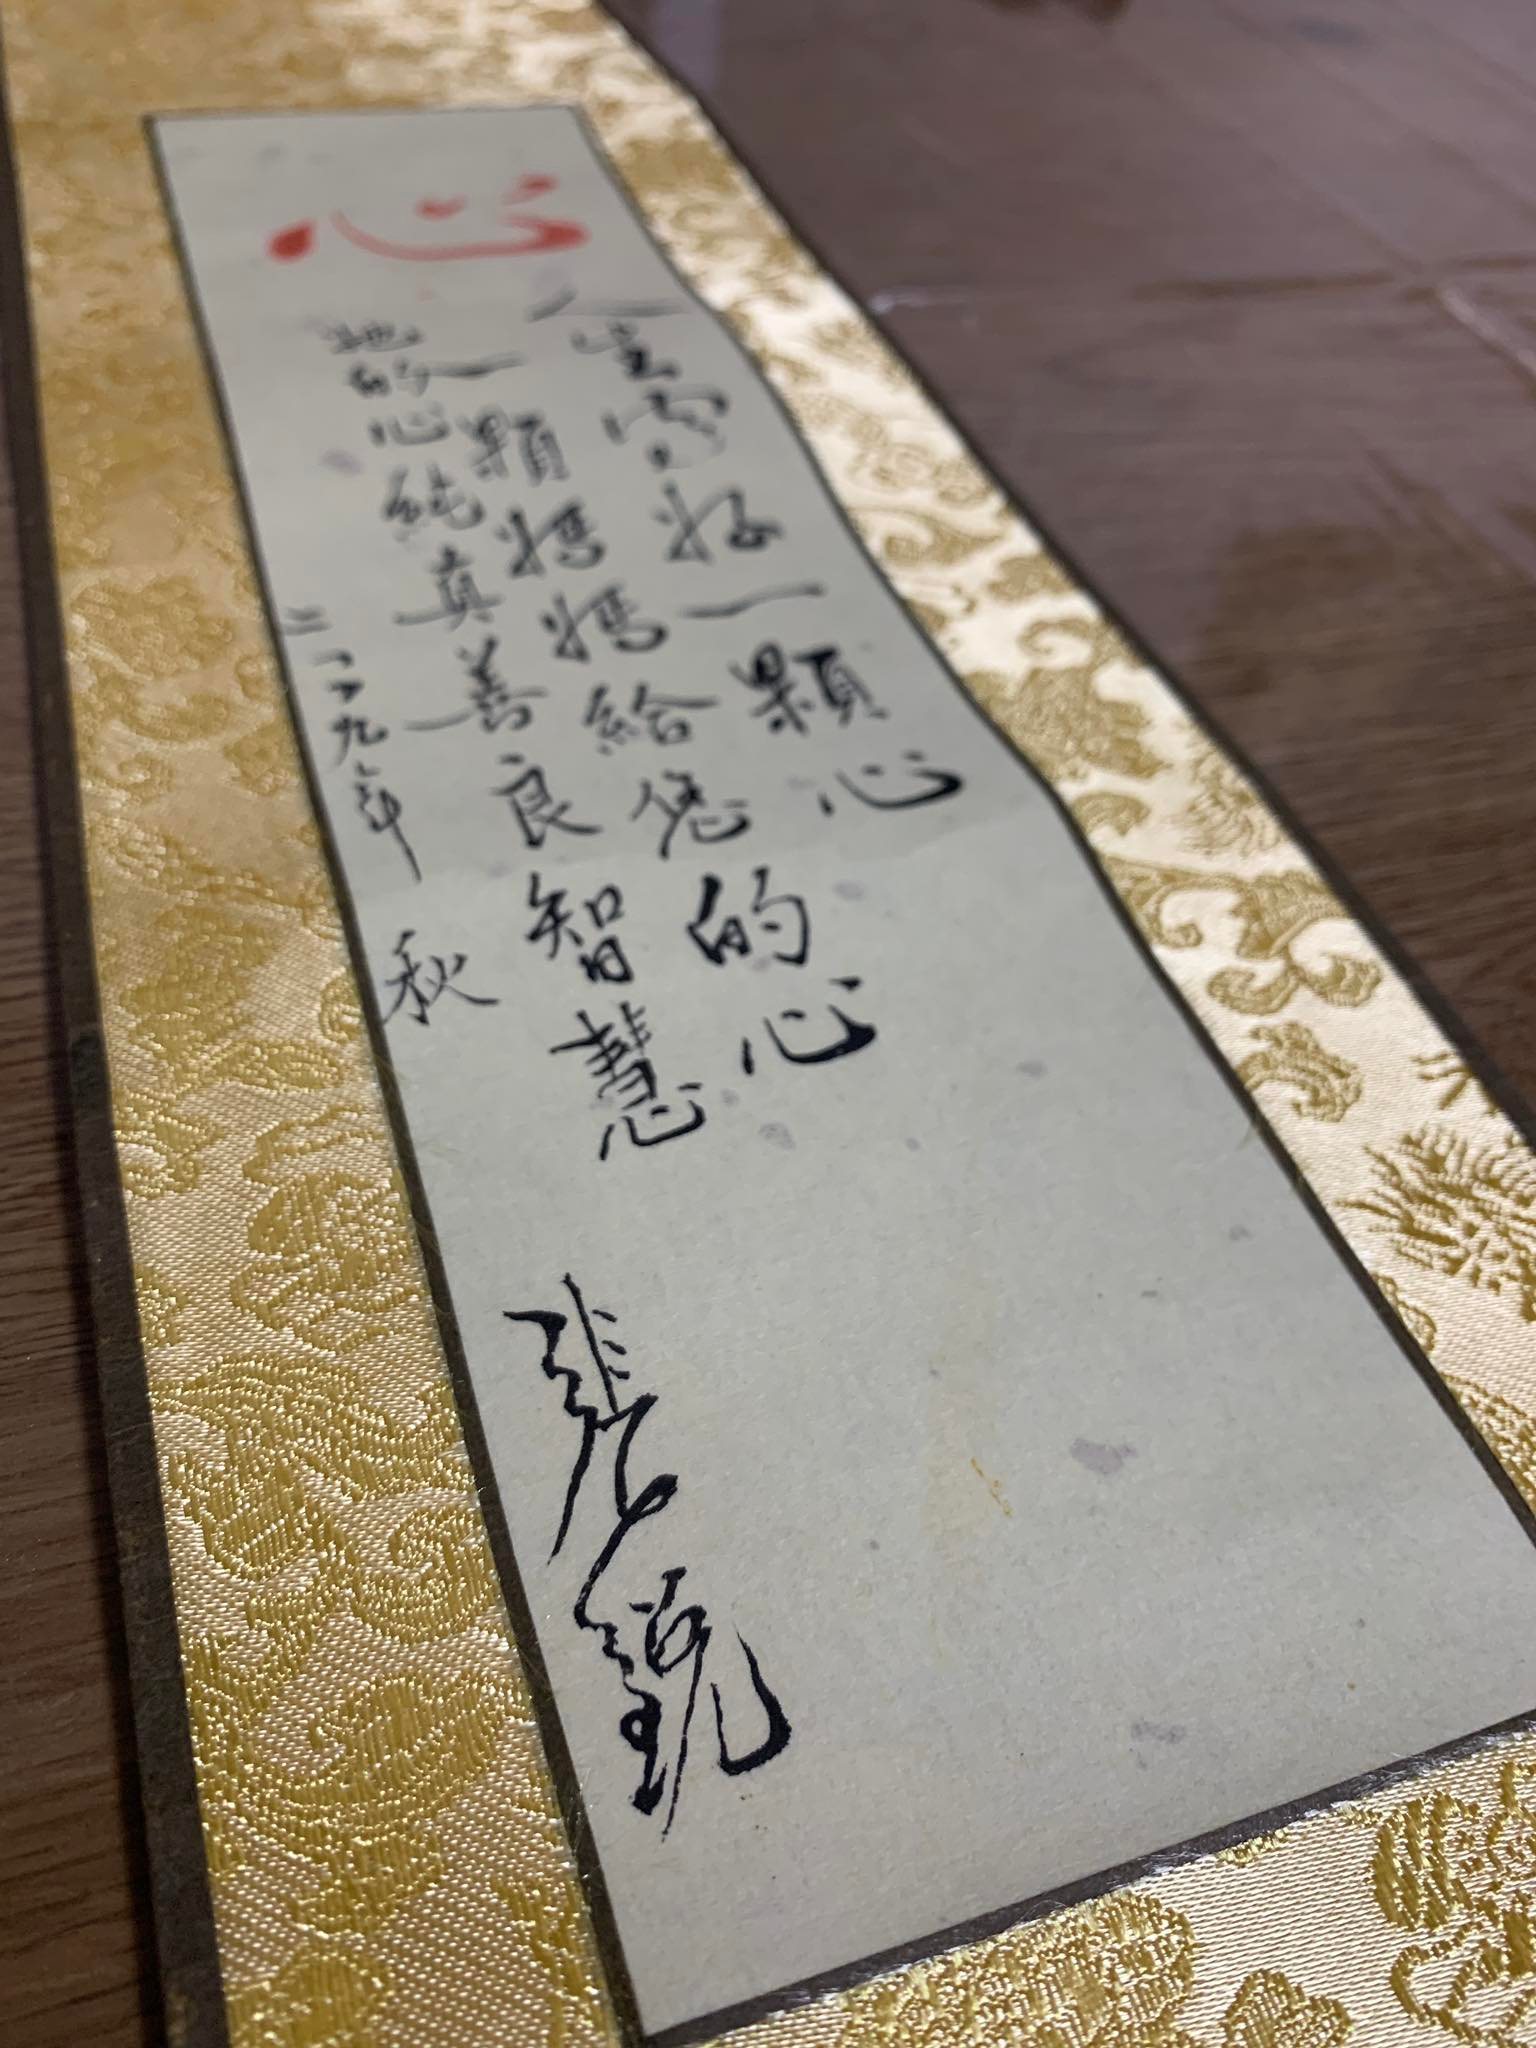 心
人生 好一顆心
一顆媽媽給您的心
她的心純真善良智慧
九年 秋